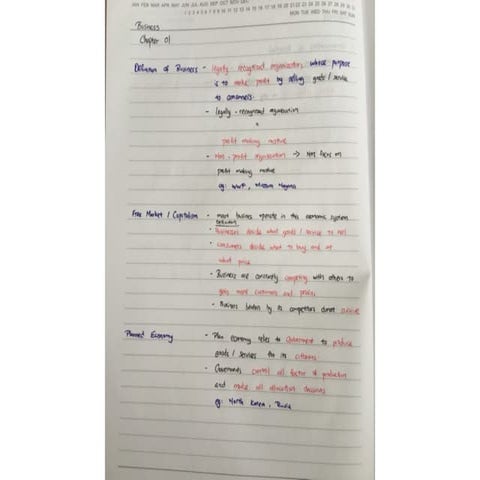 JAN FEB MAR APR MAY JUN JUL AUG SEP OCT NOV DEC
1 2 3 4 5 6 7 8 9 10 11 12 13 14 15 16 17 18 19 20 21 22 23 24 25 26 27 28 29 30 31
MON TUE WED THU FRI SAT SUN
Business
Chapter 01
Definition of Business - legally recognised organisation, whose purpose
is to make profit by selling goods / service
to consumers.
- legally-recognised organisation
+
profit making motive
- Non-profit organisation → Not focus on
profit making motive
eg: WWF,
Free Market / Capitalism - most business operate in this economic system
- Businesses decide what goods / service to sell
- consumers decide what to buy and at
what price
- Business are constantly competing with others to
gain more customers and profits
- Business beaten by its competitors cannot survive
Planned Economy - economy relies to Government to produce
goods / services for its citizens
- Governments control all factor of production
and make all allocation decisions
eg: North Korea,